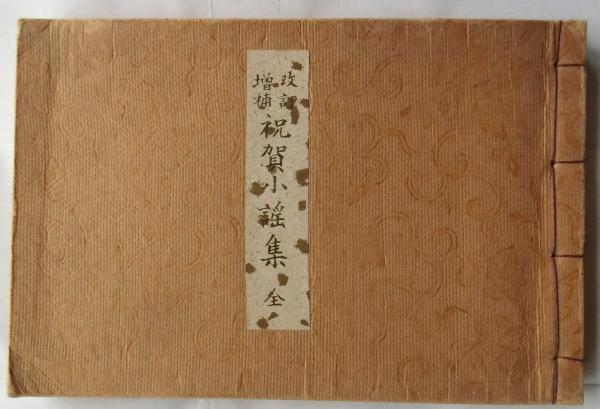 改訂
増補
祝賀小謡集 全